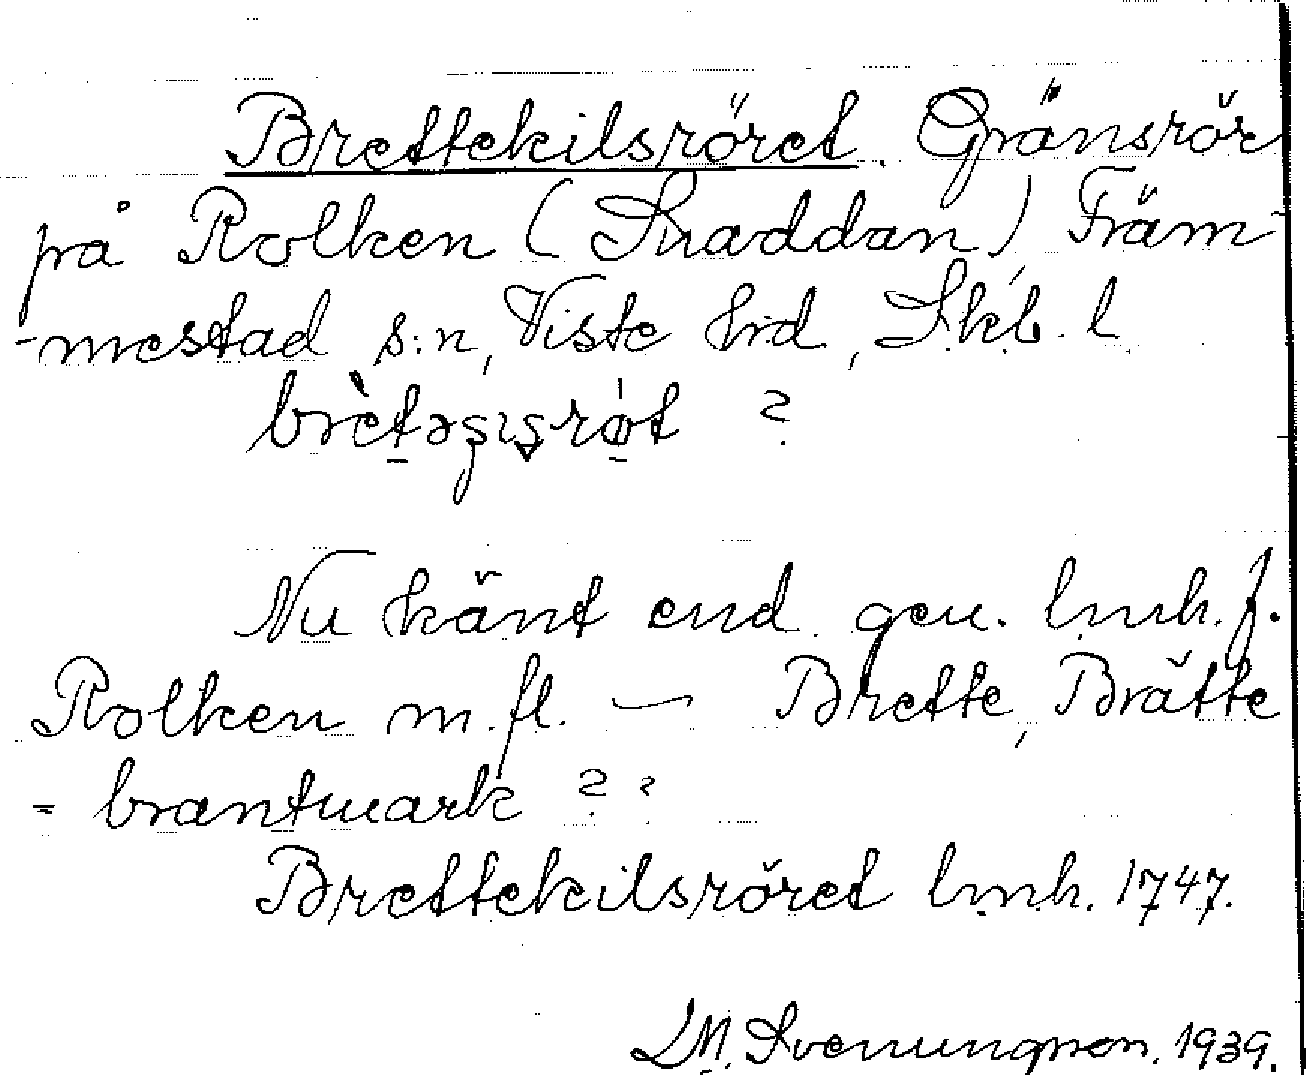 Brettekilsröret. Gränsrör
på Rolken (Snaddan) Främ-
-mestad s:n, Viste hrd, Skb. l
?
Nu känt end. gen. lmh. f.
Rolken m. fl. — Brette, Brätte
= brantmark ? ?
Brettekilsröret lmh. 1747.
LM. Svenungsson. 1939.